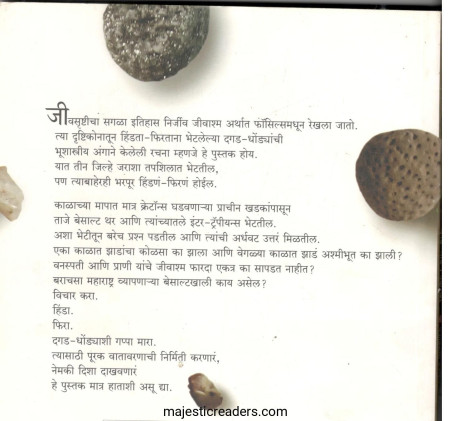 जीवसृष्टीचा सगळा इतिहास निर्जीव जीवाश्म अर्थात फॉसिल्समधून रेखला जातो.
त्या दृष्टिकोनातून हिंडता-फिरताना भेटलेल्या दगड-धोंड्यांची
भूशास्त्रीय अंगाने केलेली रचना म्हणजे हे पुस्तक होय.
यात तीन जिल्हे जराशा तपशिलात भेटतील,
पण त्याबाहेरही भरपूर हिंडणं-फिरणं होईल.
काळाच्या मापात मात्र क्रेटॉन्स घडवणाऱ्या प्राचीन खडकांपासून
ताजे बेसाल्ट थर आणि त्यांच्यातले इंटर-ट्रॅपीयन्स भेटतील.
अशा भेटीतून बरेच प्रश्न पडतील आणि त्यांची अर्धवट उत्तरं मिळतील.
एका काळात झाडांचा कोळसा का झाला आणि वेगळ्या काळात झाडं अश्मीभूत का झाली?
वनस्पती आणि प्राणी यांचे जीवाश्म फारदा एकत्र का सापडत नाहीत?
बराचसा महाराष्ट्र व्यापणाऱ्या बेसाल्टखाली काय असेल?
विचार करा.
हिंडा.
फिरा.
दगड-धोंड्याशी गप्पा मारा.
त्यासाठी पूरक वातावरणाची निर्मिती करणारं,
नेमकी दिशा दाखवणारं
हे पुस्तक मात्र हाताशी असू द्या.
majesticreaders.com